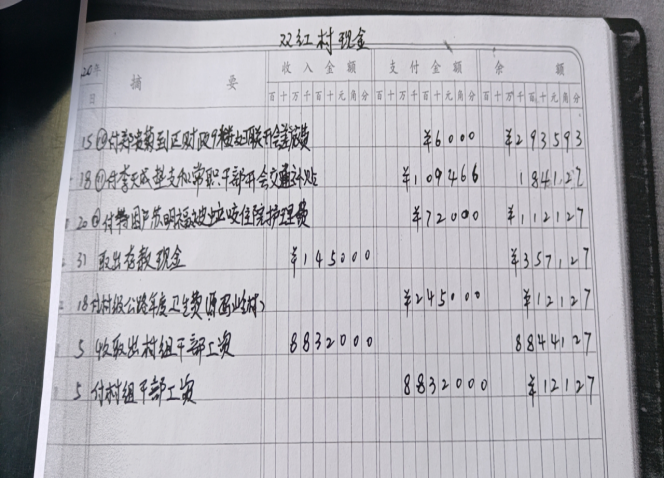 双红村现金
20 年 摘 要 收入金额 支付金额 余 额
日 百十万千百十元角分 百十万千百十元角分 百十万千百十元角分
15 付 ¥6000 ¥293593
18 付李天成垫支和常职干部开会交通补贴 ¥109466 184127
20 付 住院护理费 ¥72000 ¥112127
31 取出存款现金 ¥145000 ¥357127
18 付村级公路年度卫生费 ¥245000 ¥12127
5 收取出村组干部工资 8832000 8844127
5 付村组干部工资 8832000 ¥12127